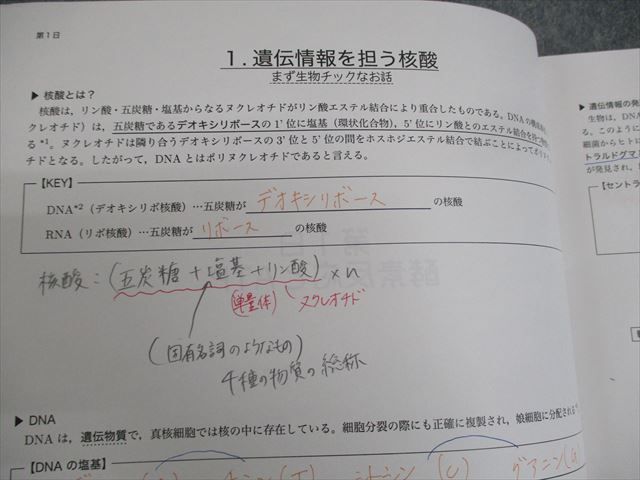 第1日
1.遺伝情報を担う核酸
まず生物チックなお話
▶ 核酸とは？
核酸は，リン酸・五炭糖・塩基からなるヌクレオチドがリン酸エステル結合により重合したものである。DNAの構成
クレオチド）は，五炭糖であるデオキシリボースの1'位に塩基（環状化合物），5'位にリン酸とのエステル結合を持つ
る*1。ヌクレオチドは隣り合うデオキシリボースの3'位と5'位の間をホスホジエステル結合で結ぶことによって
チドとなる。したがって，DNAとはポリヌクレオチドであると言える。
【KEY】
DNA*2（デオキシリボ核酸）…五炭糖が デオキシリボース の核酸
RNA（リボ核酸）…五炭糖が リボース の核酸
核酸：(五炭糖＋塩基＋リン酸)×n
(単量体) ヌクレオチド
(固有名詞のようなもの)
4種の物質の総称
▶ DNA
DNAは，遺伝物質で，真核細胞では核の中に存在している。細胞分裂の際にも正確に複製され，娘細胞に分配される
【DNAの塩基】
(T) シトシン (C) グアニン(G
▶ 遺伝情報の発
生物は，DNA
る。このように
細菌からヒトに
トラルドグマ
が発見され，
【セントラ